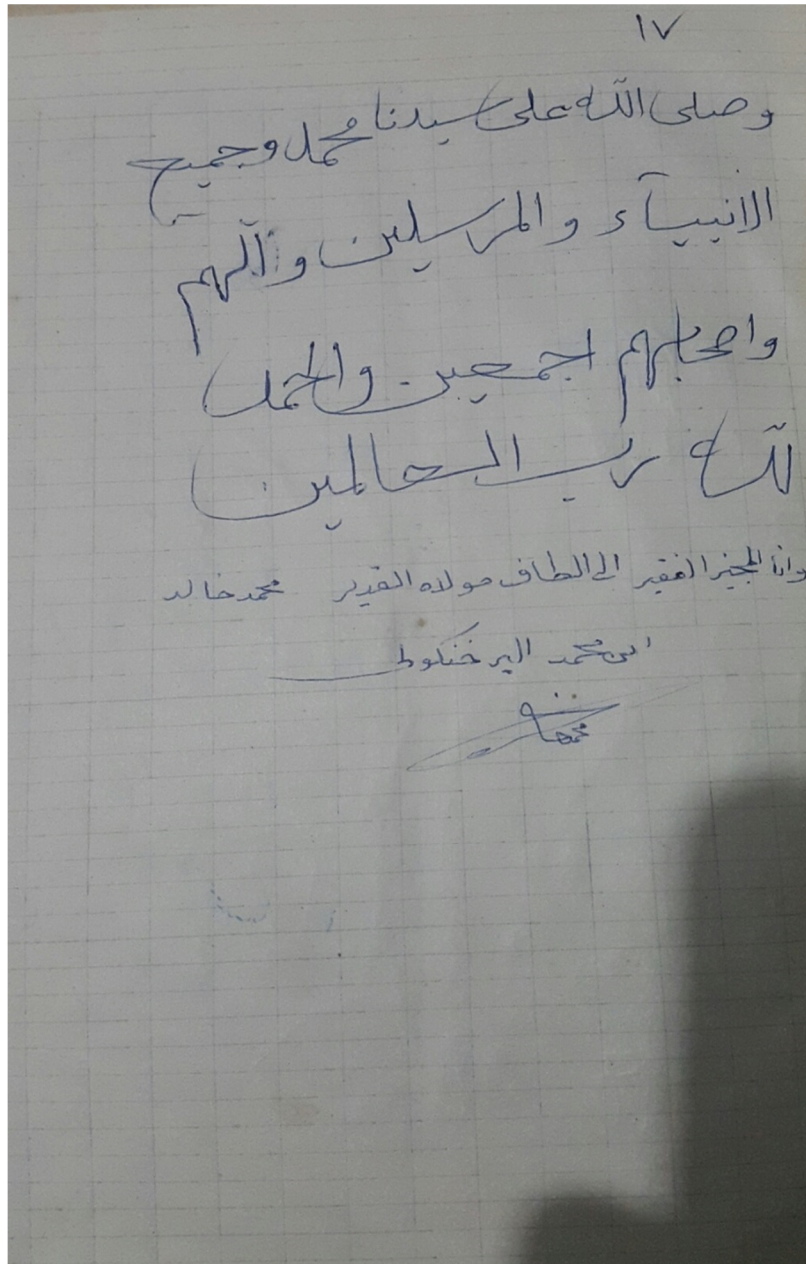 ١٧
وصلى اللّه على سيدنا محمد وجميع
الانبيآء والمرسلين وآلهم
واصحابهم اجمعين والحمد
للّه رب العالمين
وانا المجيز الفقير الى الطاف مولاه القدير محمد خالد
ابن محمد البرخنكوكي